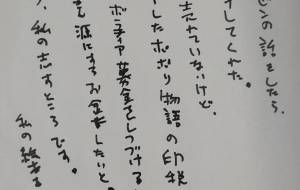 ピンの話をしたら、
けしてくれた。
売れていないけど、
したポポリ物語の印税
ボランティア募金をしつづける
源にするお金にしたいと。
、私の志すところです。
私の